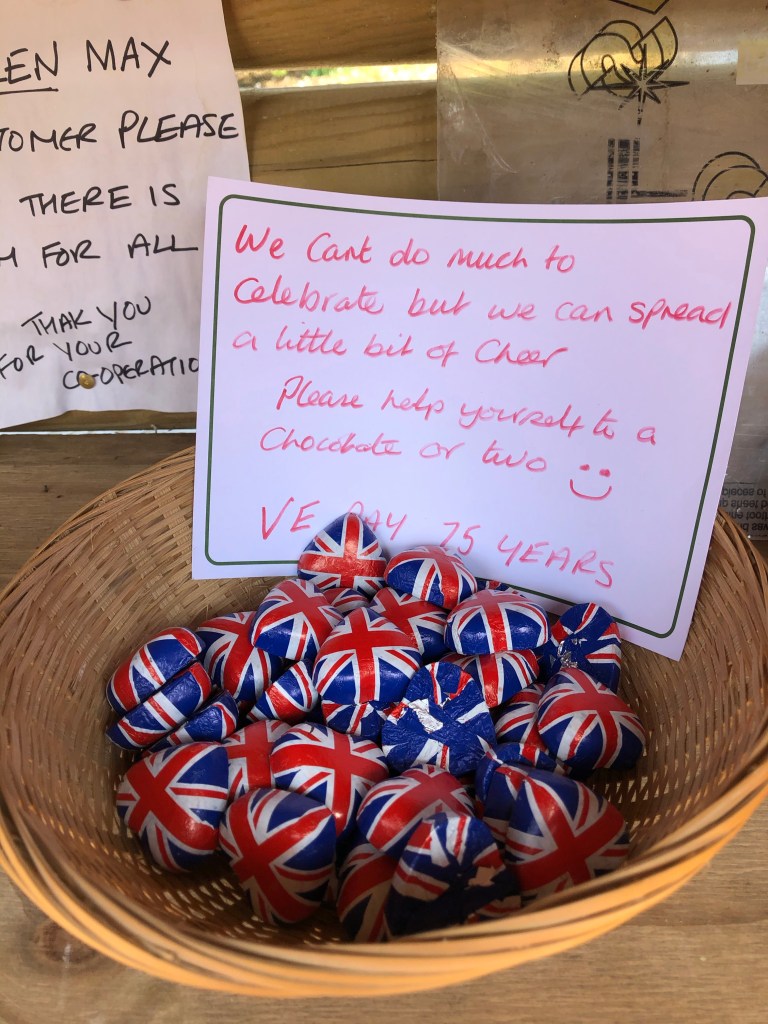 EN MAX
TOMER PLEASE
THERE IS
FOR ALL
THAK YOU
FOR YOUR
CO-OPERATIO
We Cant do much to
Celebrate but we can spread
a little bit of Cheer
Please help yourself to a
Chocolate or two
VE DAY 75 YEARS